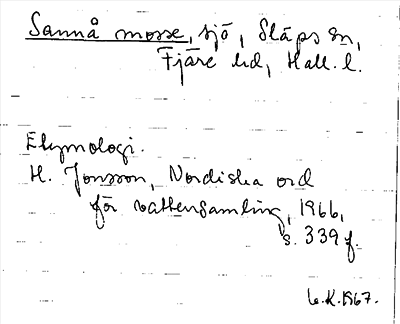 Sannå mosse, sjö, Släps sn,
Fjäre hd, Hall. l.
Etymologi.
H. Jonsson, Nordiska ord
för vattensamling, 1966,
s. 339 f.
K. 1967.